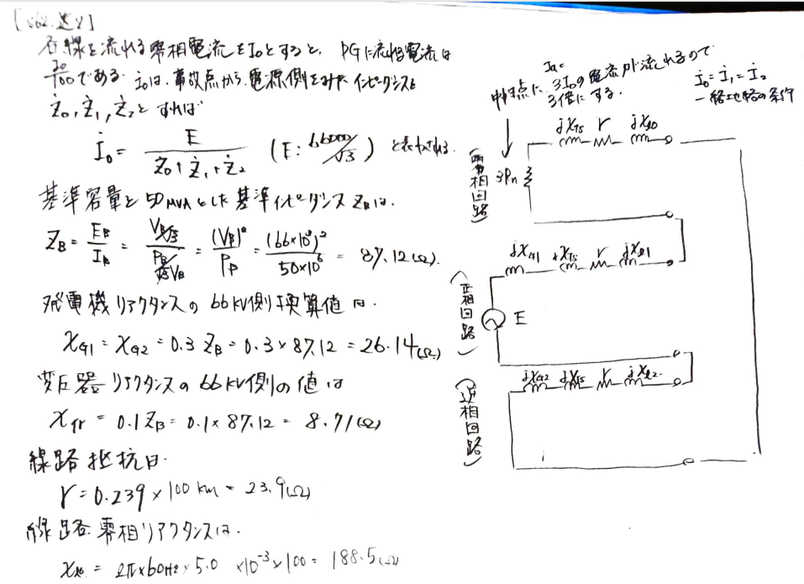 各線を流れる零相電流をI₀とすると、PGに流れる電流は
である. İ₀は、事故点から、電源側をみたインピーダンスを
Ż₀, Ż₁, Ż₂とすれば
İ₀ = E / (Ż₀+Ż₁+Ż₂) (E: 66000/√3) と表わされる.
基準容量を50MVAとした基準インピーダンス Z_Bは、
Z_B = E_B/I_B = (V_B/√3)/(P_B/√3V_B) = (V_B)²/P_B = (66×10³)²/(50×10⁶) = 87.12(Ω).
発電機リアクタンスの66kV側換算値は.
X_G1 = X_G2 = 0.3 Z_B = 0.3×87.12 = 26.14(Ω)
変圧器リアクタンスの66kV側の値は
= 0.1Z_B = 0.1×87.12 = 8.71(Ω)
線路抵抗は.
r = 0.239×100 km = 23.9(Ω)
線路零相リアクタンスは.
= 2π×60Hz×5.0 ×10⁻³×100 = 188.5(Ω)
中性点に、3I₀の電流が流れるので
3倍にする.
İ₀=İ₁=İ₂
一線地絡の条件
r
零相回路
r
正相回路
E
r
逆相回路